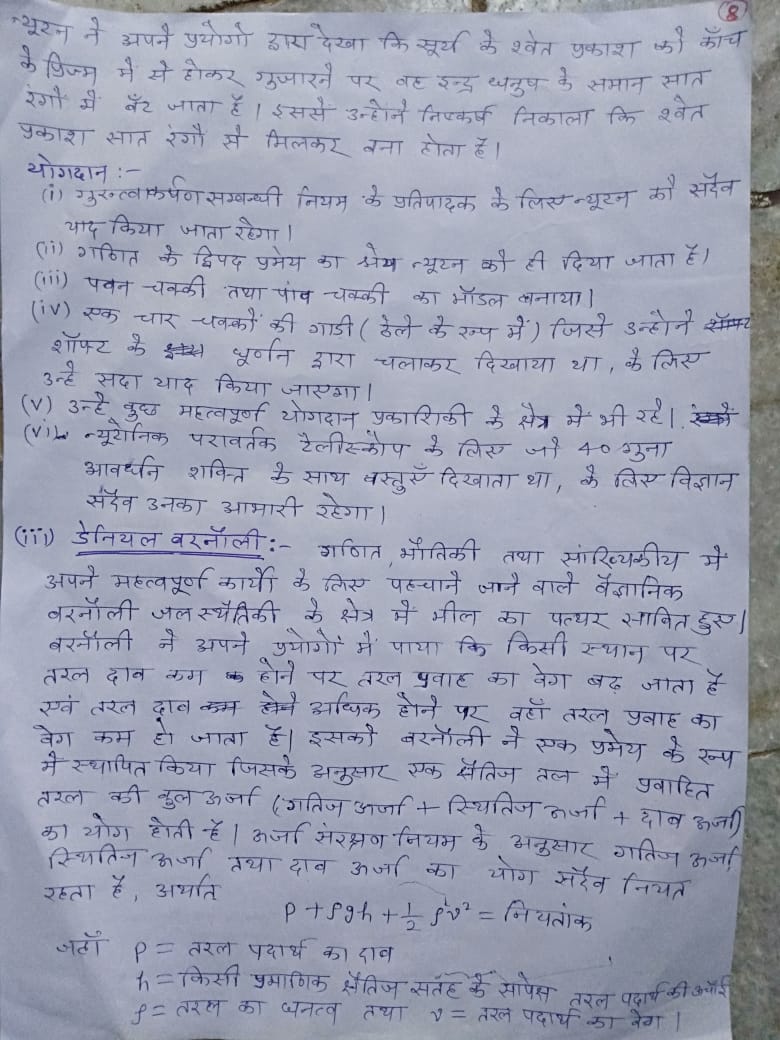 8
न्यूटन ने अपने प्रयोगो द्वारा देखा कि सूर्य के श्वेत प्रकाश को काँच
के प्रिज्म में से होकर गुजारने पर वह इन्द्र धनुष के समान सात
रंगों में बँट जाता है। इससे उन्होने निष्कर्ष निकाला कि श्वेत
प्रकाश सात रंगो से मिलकर बना होता है।
योगदान :-
(i) गुरुत्वाकर्षण सम्बन्धी नियम के प्रतिपादक के लिए न्यूटन को सदैव
याद किया जाता रहेगा।
(ii) गणित के द्विपद प्रमेय का श्रेय न्यूटन को ही दिया जाता है।
(iii) पवन चक्की तथा पांव चक्की का मॉडल बनाया।
(iv) एक चार चक्कों की गाडी (ठेले के रूप में) जिसे उन्होने
शॉफ्ट के घूर्णन द्वारा चलाकर दिखाया था, के लिए
उन्हे सदा याद किया जाएगा।
(v) उन्हे कुछ महत्वपूर्ण योगदान प्रकाशिकी के क्षेत्र में भी रहे।
(vi) न्यूटोनिक परावर्तक टैलीस्कोप के लिए जो 40 गुना
आवर्धन शक्ति के साथ वस्तुएँ दिखाता था, के लिए विज्ञान
सदैव उनका आभारी रहेगा।
(iii) डेनियल बरनौली :- गणित, भौतिकी तथा सांख्यिकीय में
अपने महत्वपूर्ण कार्यो के लिए पहचाने जाने वाले वैज्ञानिक
बरनौली जलस्थैतिकी के क्षेत्र में मील का पत्थर साबित हुए।
बरनौली ने अपने प्रयोगों में पाया कि किसी स्थान पर
तरल दाब कम होने पर तरल प्रवाह का वेग बढ़ जाता है
एवं तरल दाब अधिक होने पर वहाँ तरल प्रवाह का
वेग कम हो जाता है। इसको बरनौली ने एक प्रमेय के रूप
में स्थापित किया जिसके अनुसार एक क्षैतिज तल में प्रवाहित
तरल की कुल ऊर्जा (गतिज ऊर्जा + स्थितिज ऊर्जा + दाब ऊर्जा)
का योग होती है। ऊर्जा संरक्षण नियम के अनुसार गतिज ऊर्जा,
स्थितिज ऊर्जा तथा दाब ऊर्जा का योग सदैव नियत
रहता है, अर्थात
P + ρgh + ½ ρv² = नियतांक
जहाँ P = तरल पदार्थ का दाब
h = किसी प्रमाणिक क्षैतिज सतह के सापेक्ष तरल पदार्थ की ऊचाई
ρ = तरल का घनत्व तथा v = तरल पदार्थ का वेग।